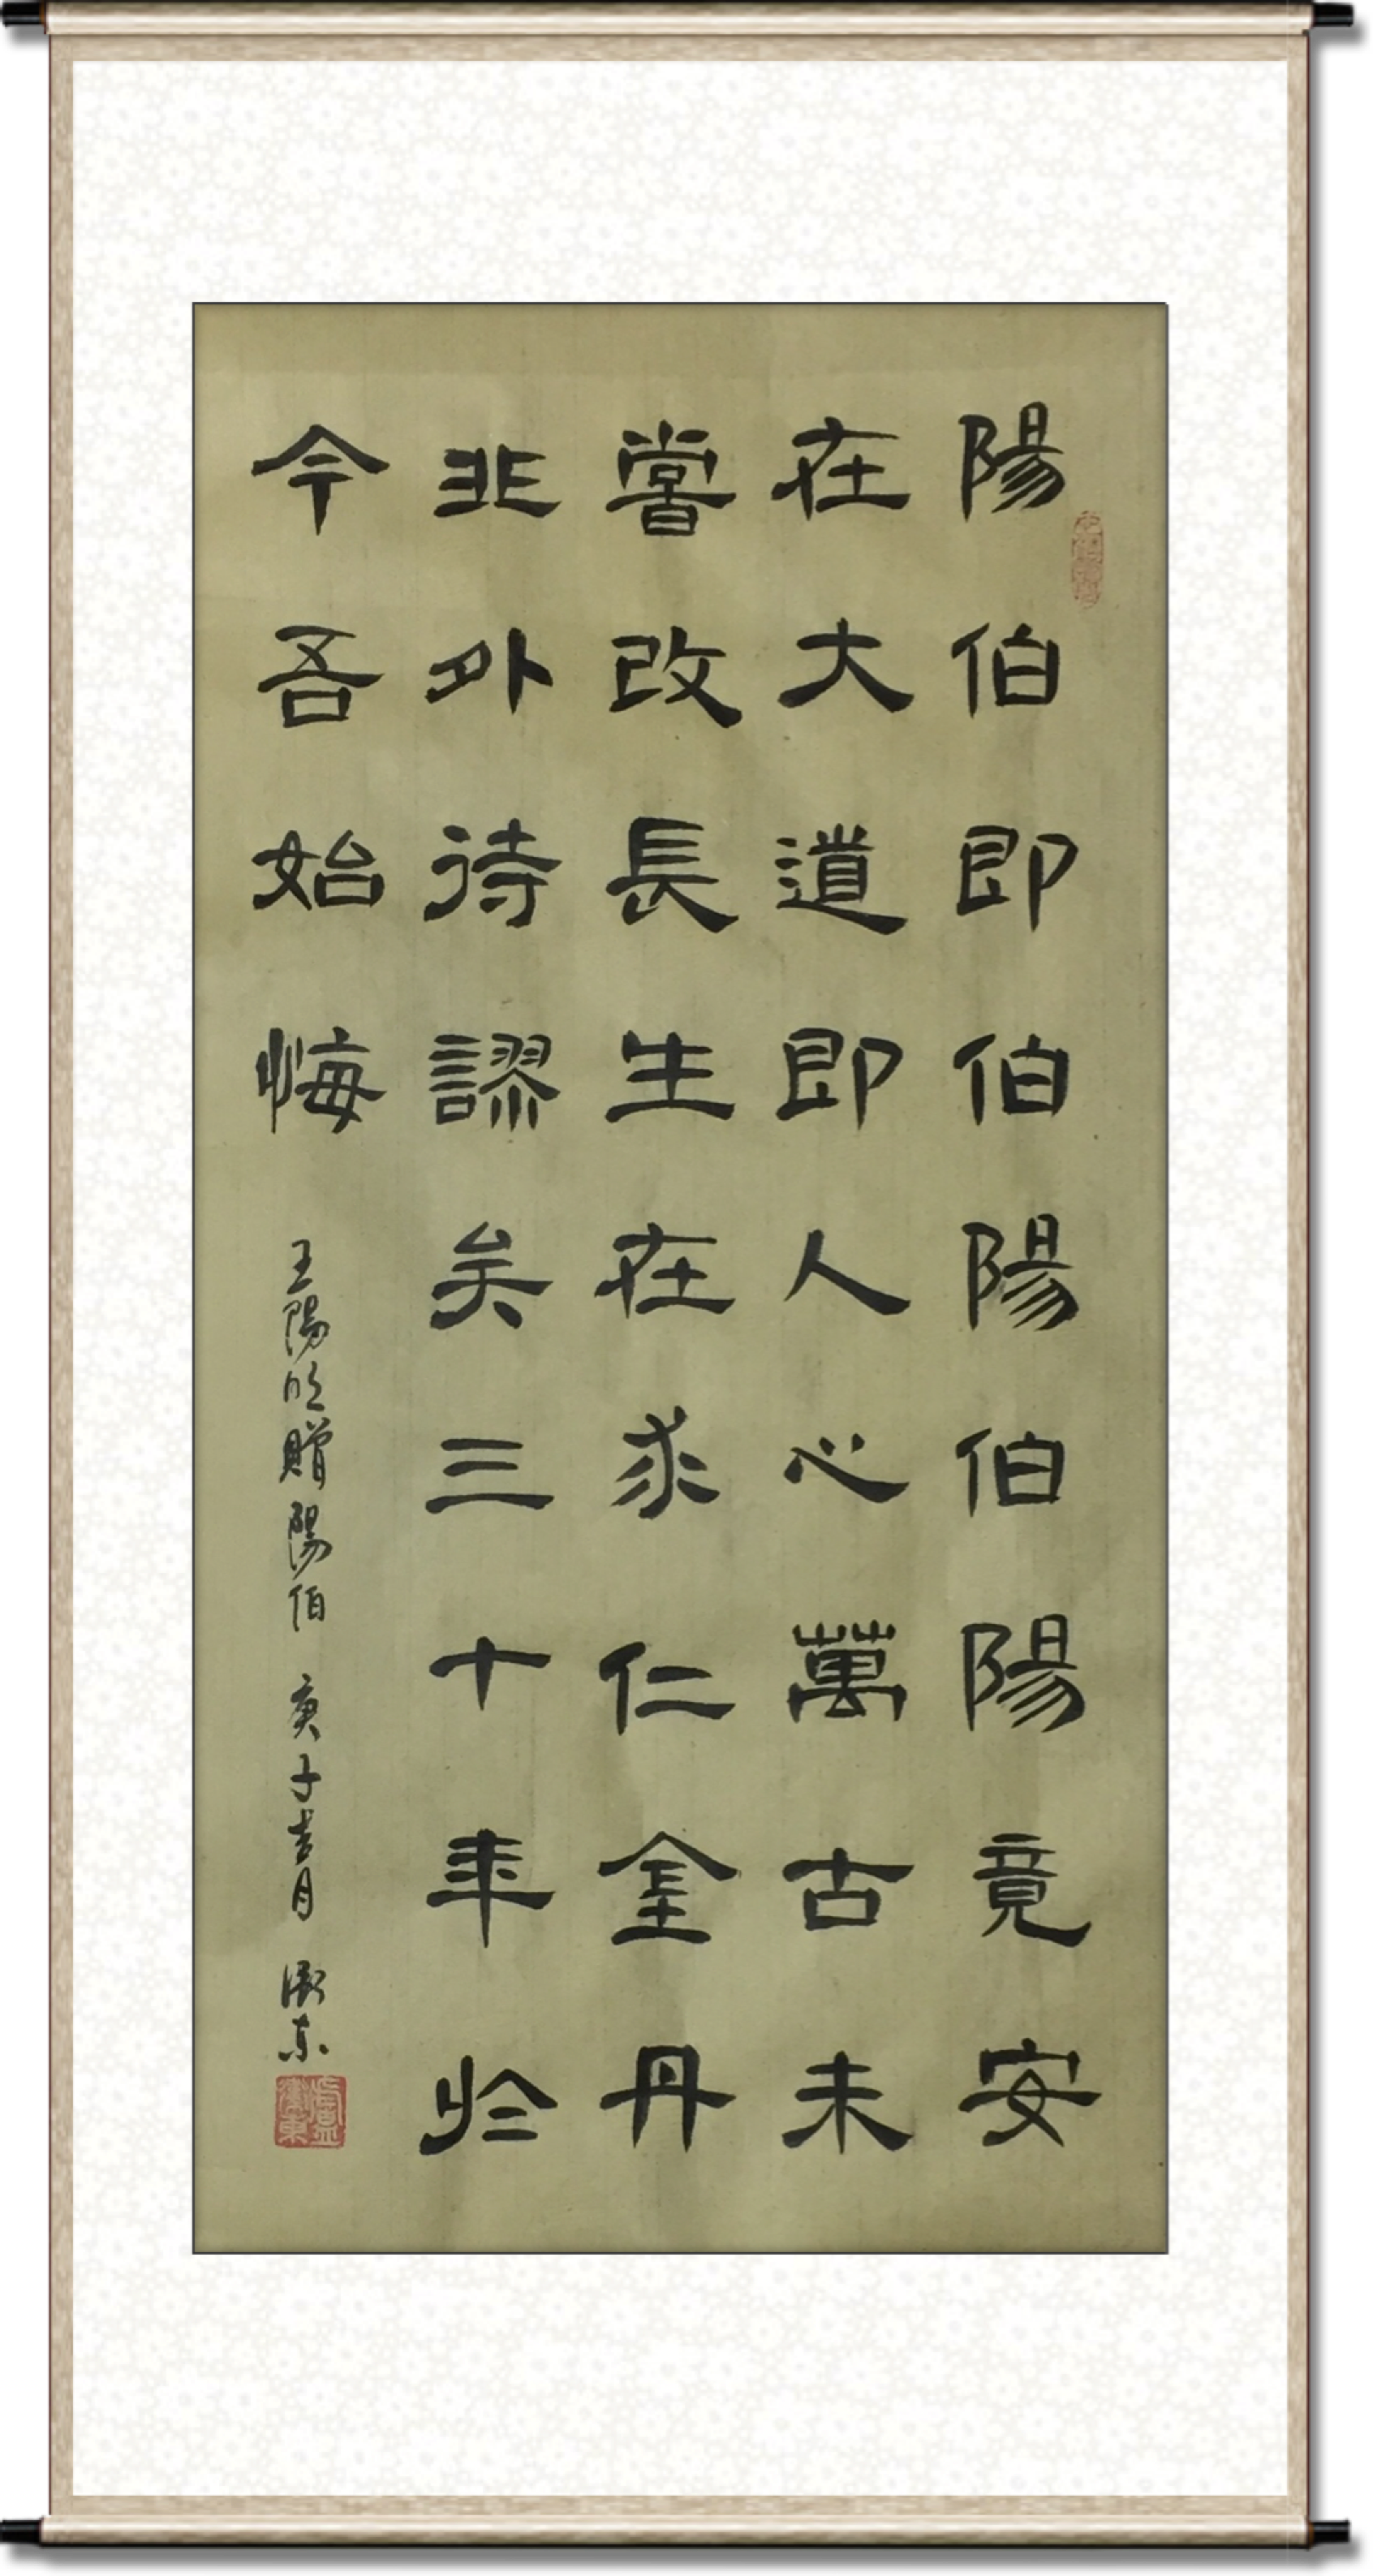 陽伯即伯陽伯陽竟安
在大道即人心萬古未
嘗改長生在求仁金丹
非外待謬矣三十年於
今吾始悔
王陽明贈陽伯 庚子吉月 衛東